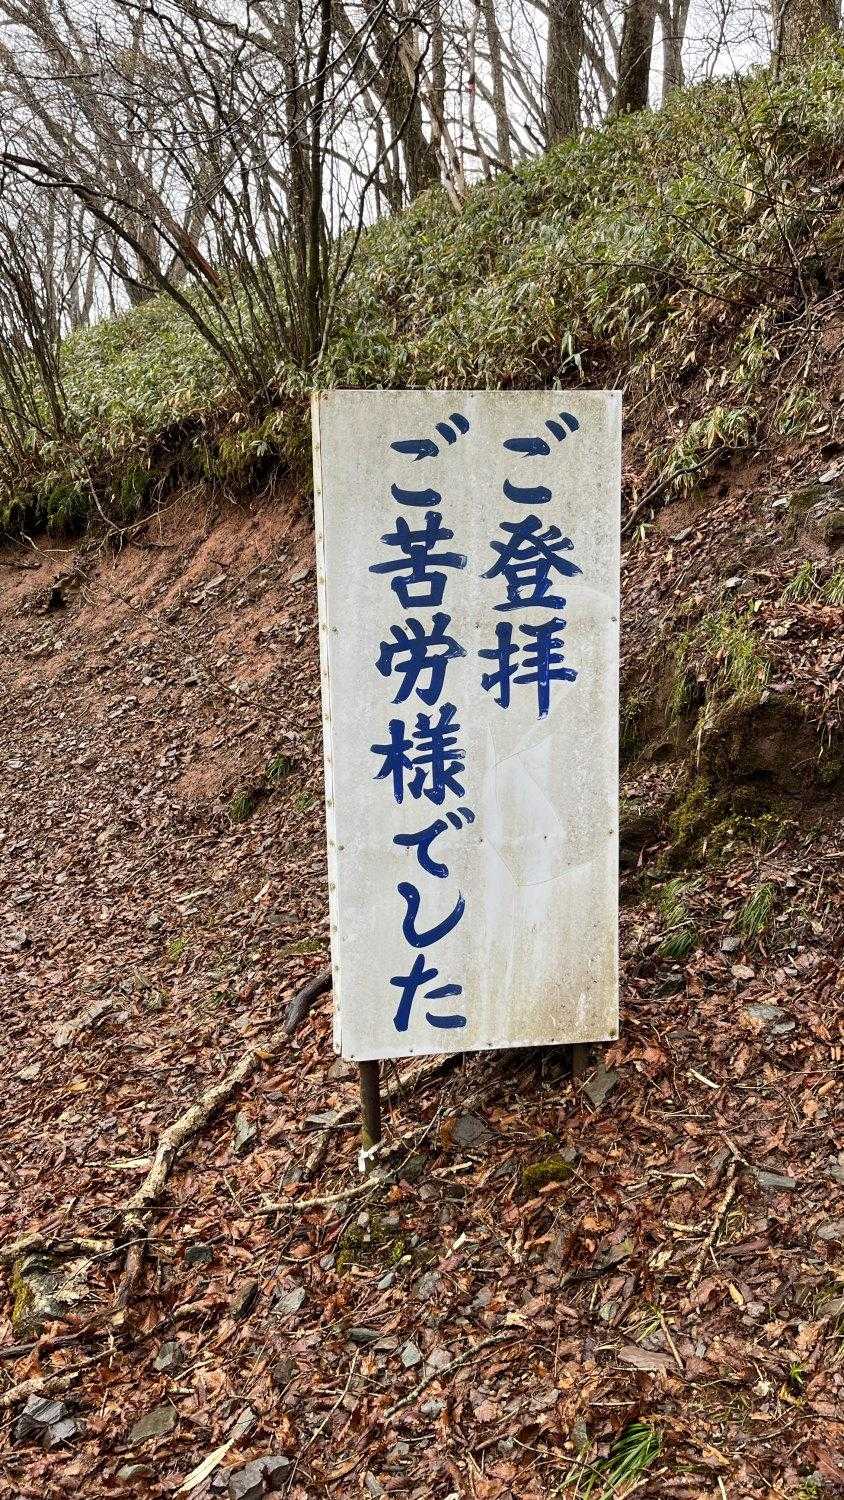 ご登拝
ご苦労様でした